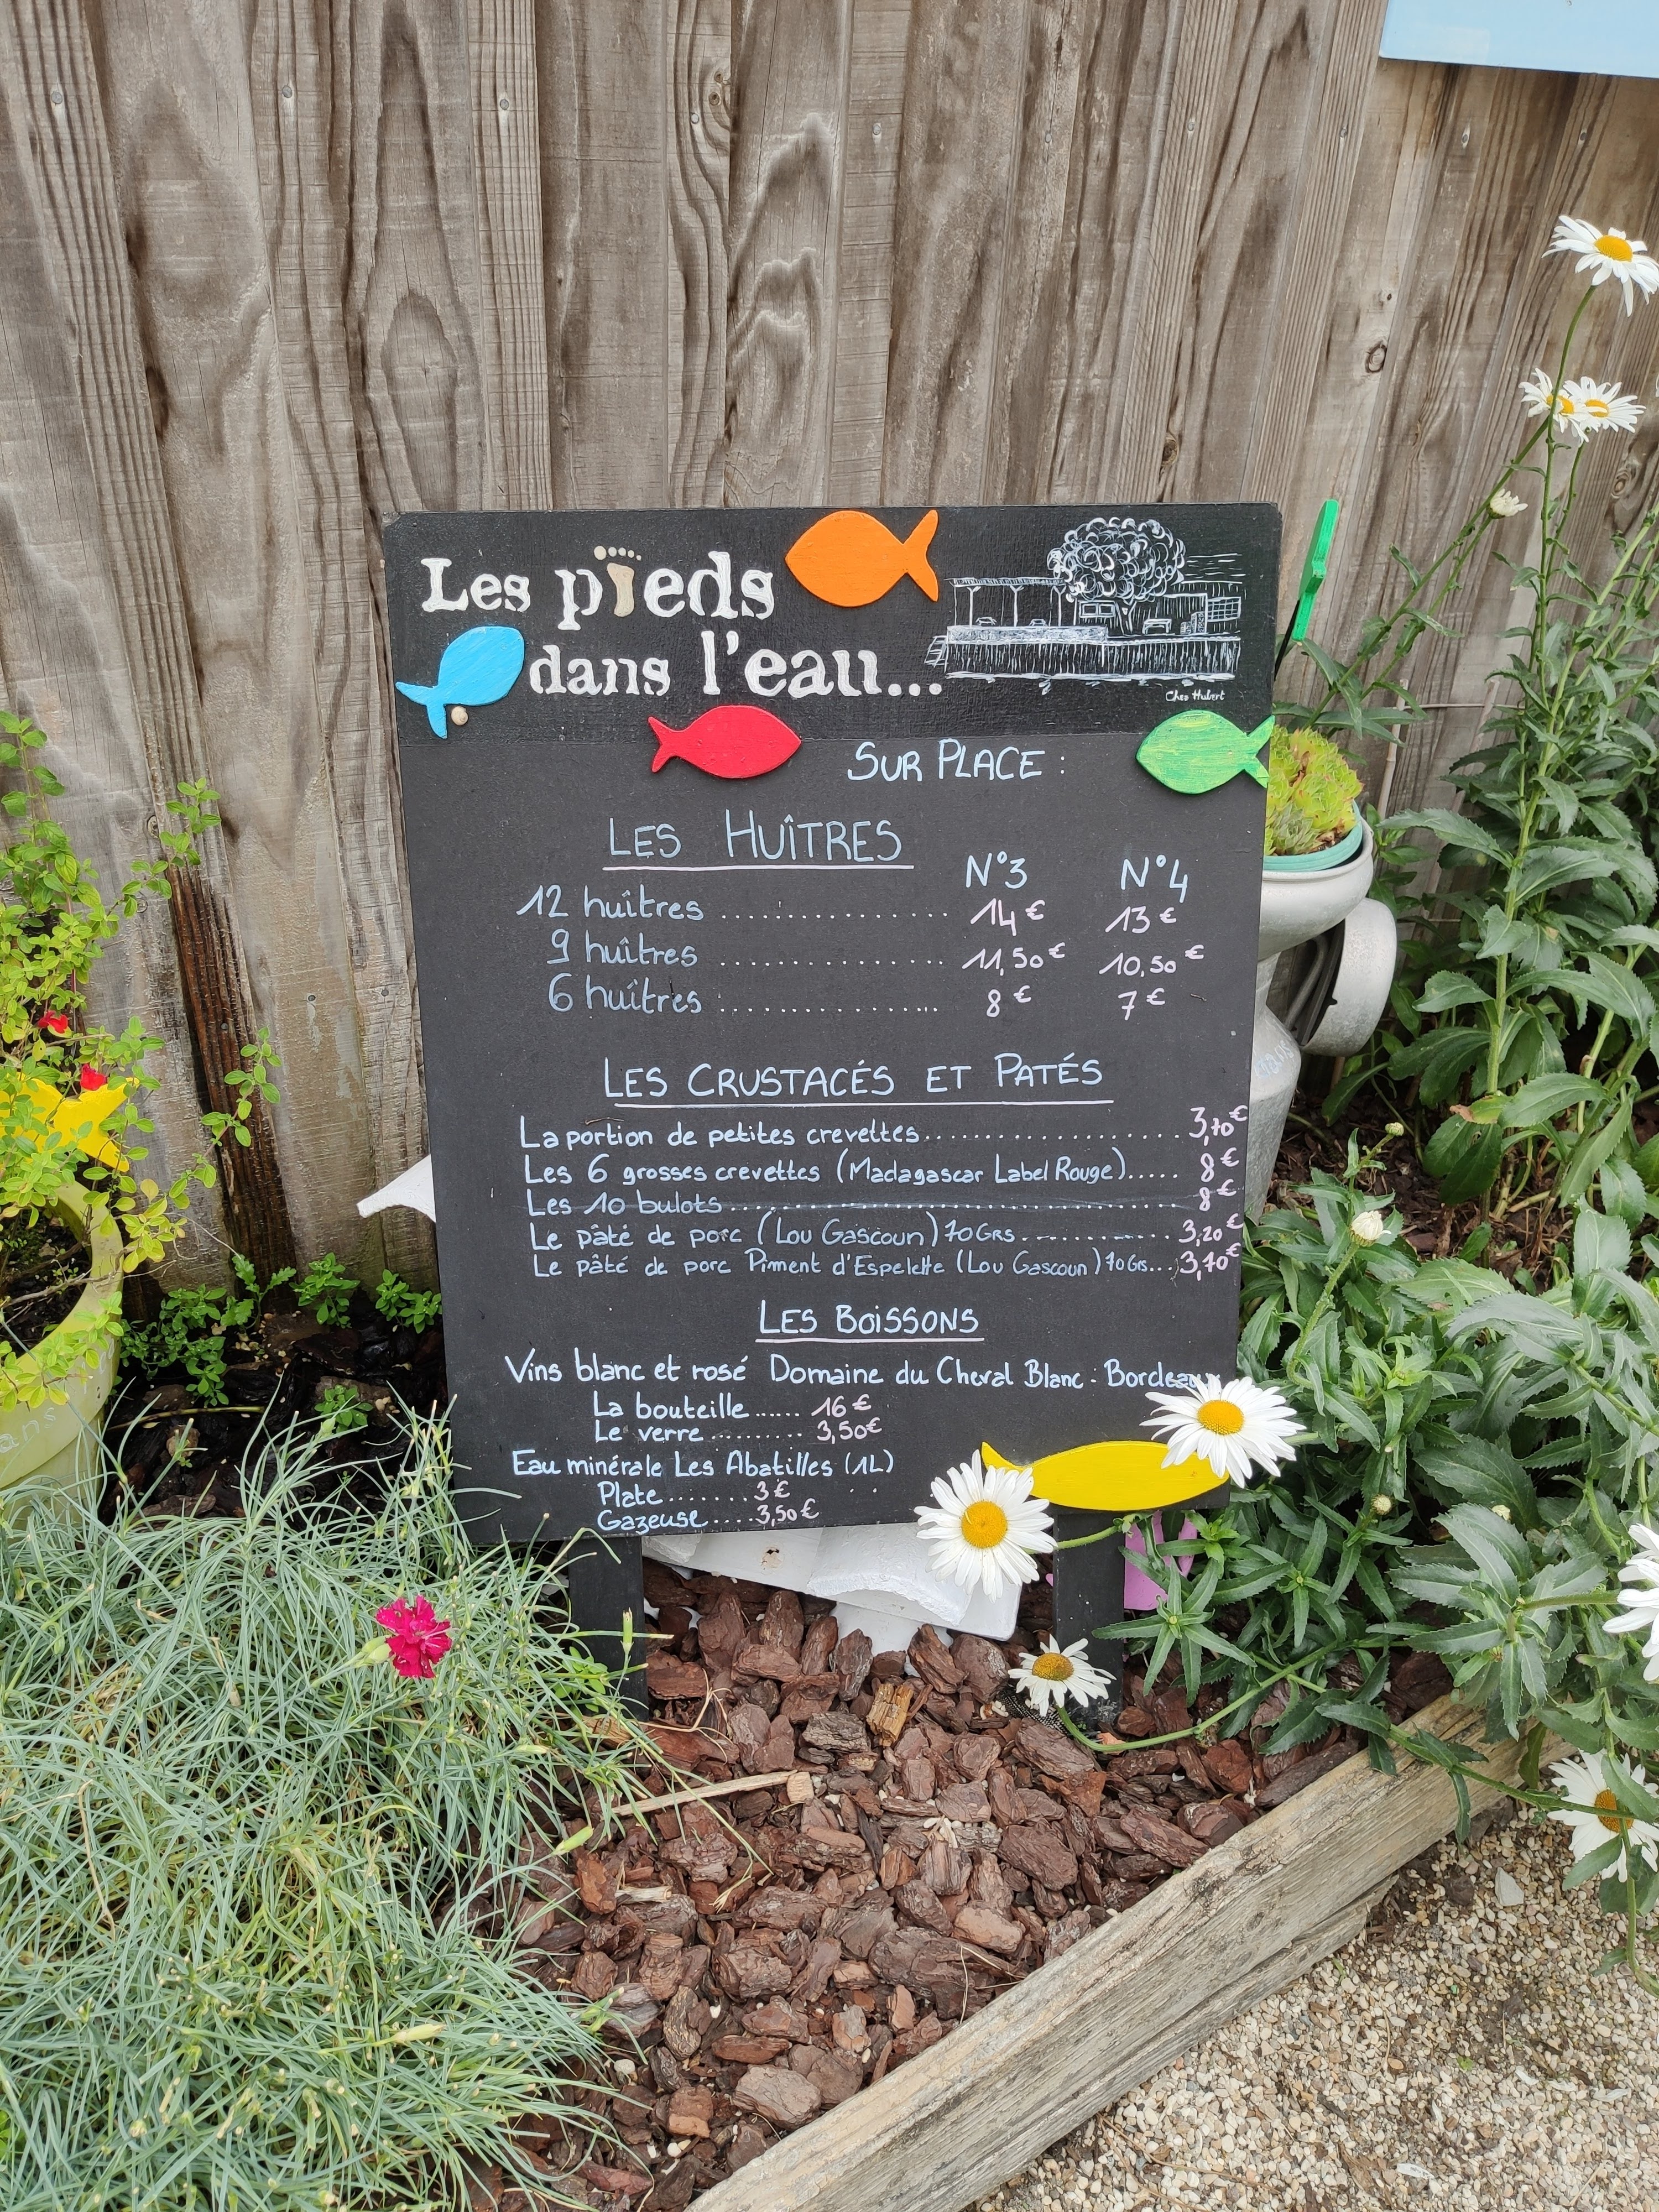 Les pieds
dans l'eau...
Chez Hubert
SUR PLACE :
LES HUÎTRES
N°3 N°4
12 huîtres ................ 14€ 13€
9 huîtres ................ 11,50€ 10,50€
6 huîtres ................ 8€ 7€
LES CRUSTACÉS ET PATÉS
La portion de petites crevettes................... 3,70€
Les 6 grosses crevettes (Madagascar Label Rouge)..... 8€
Les 10 bulots................................... 8€
Le pâté de porc (Lou Gascoun) 70GRS............. 3,20€
Le pâté de porc Piment d'Espelette (Lou Gascoun) 70Grs... 3,70€
LES BOISSONS
Vins blanc et rosé Domaine du Cheval Blanc - Bordeaux
La bouteille...... 16€
Le verre ......... 3,50€
Eau minérale Les Abatilles (1L)
Plate........ 3€
Gazeuse.... 3,50€